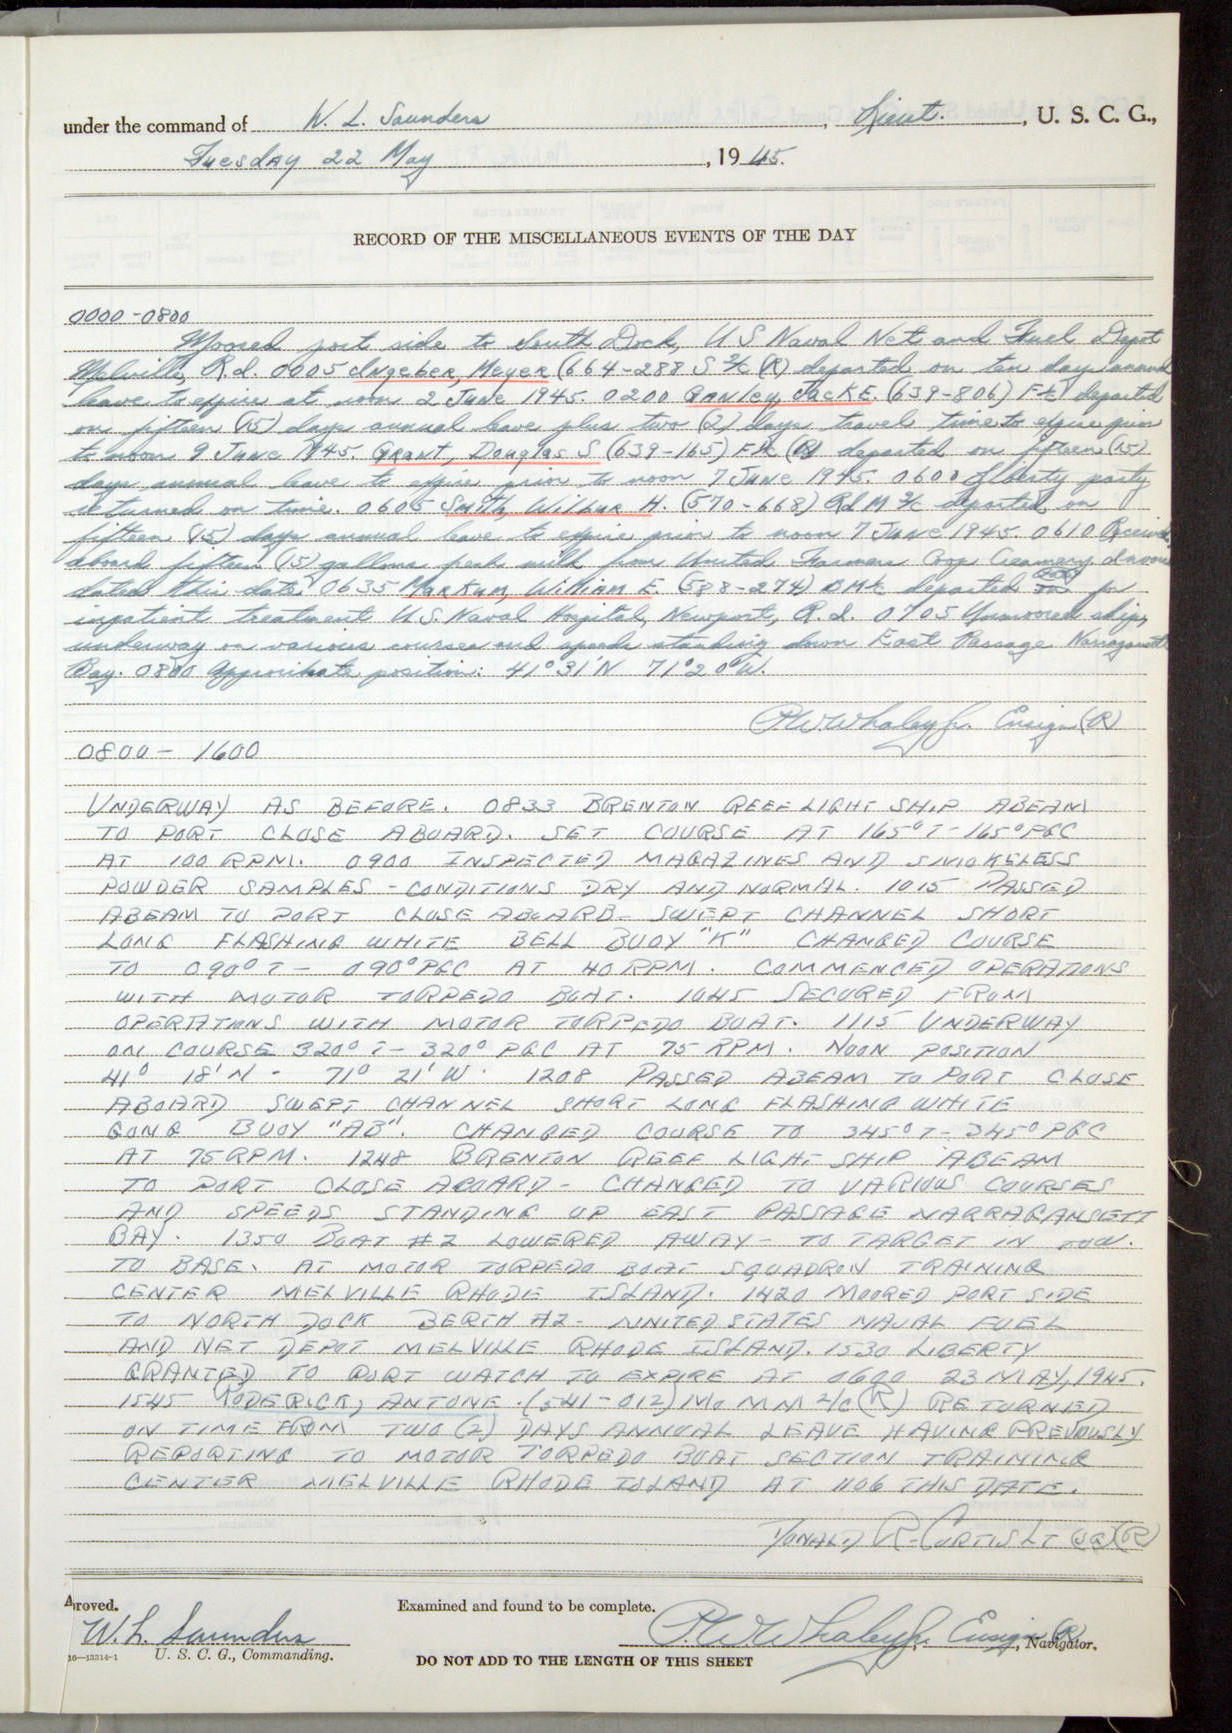 under the command of W. L. Saunders, Lieut., U. S. C. G.,
Tuesday 22 May, 1945.
RECORD OF THE MISCELLANEOUS EVENTS OF THE DAY
0000-0800
Moored port side to South Dock, U S Naval Net and Fuel Depot
Melville, R.I. 0005 Angeber, Meyer (664-288 S 2/c (R) departed on ten day annual
leave to expire at noon 2 June 1945. 0200 Ganley, Jack E. (639-806) F1c departed
on fifteen (15) days annual leave plus two (2) days travel time to expire prior
to noon 9 June 1945. Grant, Douglas S (639-165) F1c (R) departed on fifteen (15)
days annual leave to expire prior to noon 7 June 1945. 0600 Liberty party
returned on time. 0605 Smith, Wilbur H. (570-668) RdM 3/c departed on
fifteen (15) days annual leave to expire prior to noon 7 June 1945. 0610 Received
aboard fifteen (15) gallons fresh milk from United Farmers Coop Creamery
dated this date. 0635 Markum, William E. (588-274) departed for
inpatient treatment U.S. Naval Hospital, Newport, R.I. 0705 Unmoored ship,
underway on various courses and speeds standing down East Passage Narragansett
Bay. 0800 Approximate position: 41°31'N 71°20'W.
P.W. Whaley Jr. Ensign (R)
0800 - 1600
UNDERWAY AS BEFORE. 0833 BRENTON REEF LIGHT SHIP ABEAM
TO PORT CLOSE ABOARD. SET COURSE AT 165°T-165°PGC
AT 100 RPM. 0900 INSPECTED MAGAZINES AND SMOKELESS
POWDER SAMPLES - CONDITIONS DRY AND NORMAL. 1015 PASSED
ABEAM TO PORT CLOSE ABOARD SWEPT CHANNEL SHORT
LONG FLASHING WHITE BELL BUOY "K" CHANGED COURSE
TO 090°T - 090°PGC AT 40 RPM. COMMENCED OPERATIONS
WITH MOTOR TORPEDO BOAT. 1045 SECURED FROM
OPERATIONS WITH MOTOR TORPEDO BOAT. 1115 UNDERWAY
ON COURSE 320°T - 320° PGC AT 75 RPM. NOON POSITION
41° 18'N - 71° 21'W. 1208 PASSED ABEAM TO PORT CLOSE
ABOARD SWEPT CHANNEL SHORT LONG FLASHING WHITE
GONG BUOY "AB". CHANGED COURSE TO 345°T-345°PGC
AT 75 RPM. 1248 BRENTON REEF LIGHT SHIP ABEAM
TO PORT CLOSE ABOARD - CHANGED TO VARIOUS COURSES
AND SPEEDS STANDING UP EAST PASSAGE NARRAGANSETT
BAY. 1350 BOAT #2 LOWERED AWAY - TO TARGET IN TOW.
TO BASE. AT MOTOR TORPEDO BOAT SQUADRON TRAINING
CENTER MELVILLE RHODE ISLAND. 1420 MOORED PORT SIDE
TO NORTH DOCK BERTH #2 - UNITED STATES NAVAL FUEL
AND NET DEPOT MELVILLE RHODE ISLAND. 1530 LIBERTY
GRANTED TO PORT WATCH TO EXPIRE AT 0600 23 MAY, 1945.
1545 RODERICK, ANTONE (541-012) MoMM 2/c (R) RETURNED
ON TIME FROM TWO (2) DAYS ANNUAL LEAVE HAVING PREVIOUSLY
REPORTING TO MOTOR TORPEDO BOAT SECTION TRAINING
CENTER MELVILLE RHODE ISLAND AT 1106 THIS DATE.
DONALD R. CURTIS LT (JG)(R)
Approved.
W. L. Saunders
U. S. C. G., Commanding.
16—13314-1
Examined and found to be complete.
P.W. Whaley Jr. Ensign (R), Navigator.
DO NOT ADD TO THE LENGTH OF THIS SHEET